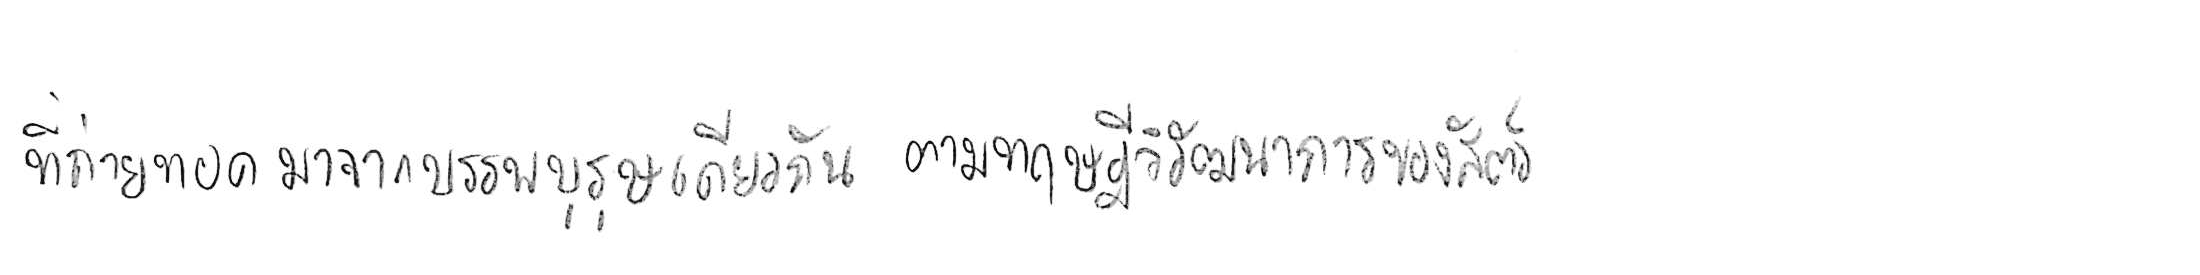 ที่ถ่ายทอดมาจากบรรพบุรุษเดียวกัน ตามทฤษฎีวิวัฒนาการของสัตว์